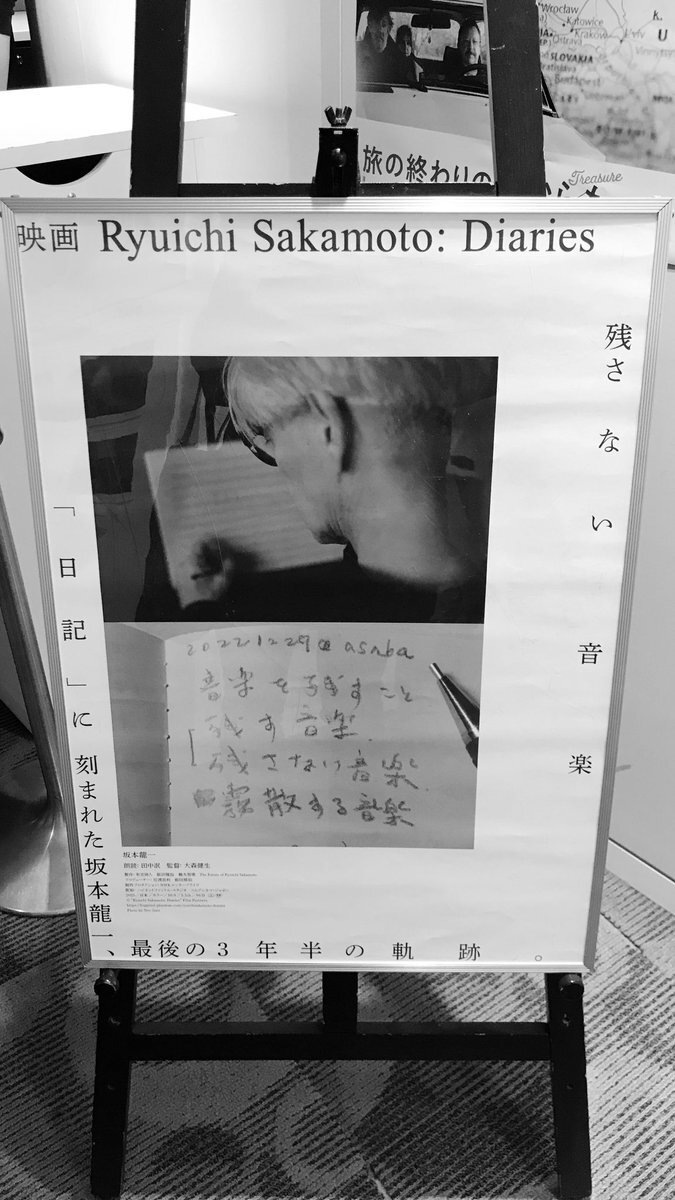 Wrocław
Katowice
Kraków
L'viv
Ostrava
SLOVAKIA
Bratislava
Budapest
U
旅の終わりの
Treasure
映画 Ryuichi Sakamoto: Diaries
残さない音楽
2022.12.29 asaba
音楽を残すこと
残す音楽
残さない音楽
霧散する音楽
「日記」に刻まれた坂本龍一、最後の3年半の軌跡。
坂本龍一
朗読: 田中泯　監督: 大森健生